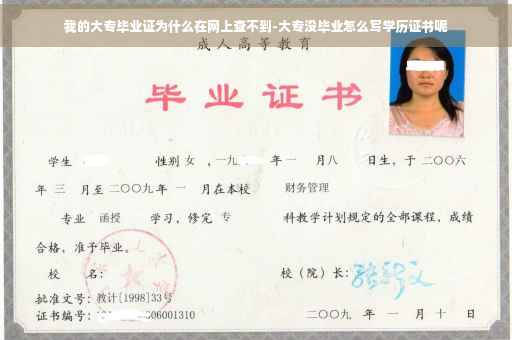 我的大专毕业证为什么在网上查不到-大专没毕业怎么写学历证书呢
成人高等教育
毕业证书
学生 性别 女 ,一九 年一 月八 日生,于二〇〇六
年 三 月至二〇〇九年 一 月在本校 财务管理
专业 函授 学习,修完 专 科教学计划规定的全部课程,成绩
合格,准予毕业。
校 名: 校(院)长:
批准文号:教计[1998]33号
证书编号: 06001310 二〇〇九 年 一 月 十 日